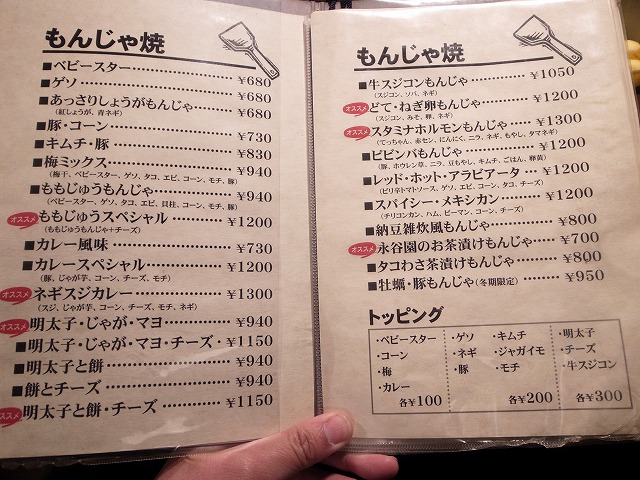 もんじゃ焼
■ベビースター ¥680
■ゲソ ¥680
■あっさりしょうがもんじゃ ¥680
(紅しょうが、青ネギ)
■豚・コーン ¥730
■キムチ・豚 ¥830
■梅ミックス ¥940
(梅干、ベビースター、ゲソ、タコ、エビ、コーン、モチ、豚)
■ももじゅうもんじゃ ¥940
(ベビースター、ゲソ、タコ、エビ、貝柱、コーン、モチ、豚)
オススメ ももじゅうスペシャル ¥1200
(ももじゅうもんじゃ+チーズ)
■カレー風味 ¥730
■カレースペシャル ¥1200
(豚、じゃが芋、コーン、チーズ、モチ)
オススメ ネギスジカレー ¥1300
(スジ、じゃが芋、コーン、チーズ、モチ、ネギ)
オススメ 明太子・じゃが・マヨ ¥940
■明太子・じゃが・マヨ・チーズ ¥1150
■明太子と餅 ¥940
■餅とチーズ ¥940
オススメ 明太子と餅・チーズ ¥1150
もんじゃ焼
■牛スジコンもんじゃ ¥1050
(スジコン、ソバ、ネギ)
オススメ どて・ねぎ卵もんじゃ ¥1200
(スジコン、みそ、卵、ネギ)
オススメ スタミナホルモンもんじゃ ¥1300
(てっちゃん、赤セン、にんにく、ニラ、ネギ、もやし、タマネギ)
■ビビンバもんじゃ ¥1200
(豚、ホウレン草、ニラ、豆もやし、キムチ、ごはん、卵黄)
■レッド・ホット・アラビアータ ¥1200
(ピリ辛トマトソース、ゲソ、エビ、コーン、タコ、チーズ)
■スパイシー・メキシカン ¥1200
(チリコンカン、ハム、ピーマン、コーン、チーズ)
■納豆雑炊風もんじゃ ¥800
オススメ 永谷園のお茶漬けもんじゃ ¥700
■タコわさ茶漬けもんじゃ ¥800
■牡蠣・豚もんじゃ(冬期限定) ¥950
トッピング
・ベビースター
・コーン
・梅
・カレー
各¥100
・ゲソ ・キムチ
・ネギ ・ジャガイモ
・豚 ・モチ
各¥200
・明太子
・チーズ
・牛スジコン
各¥300